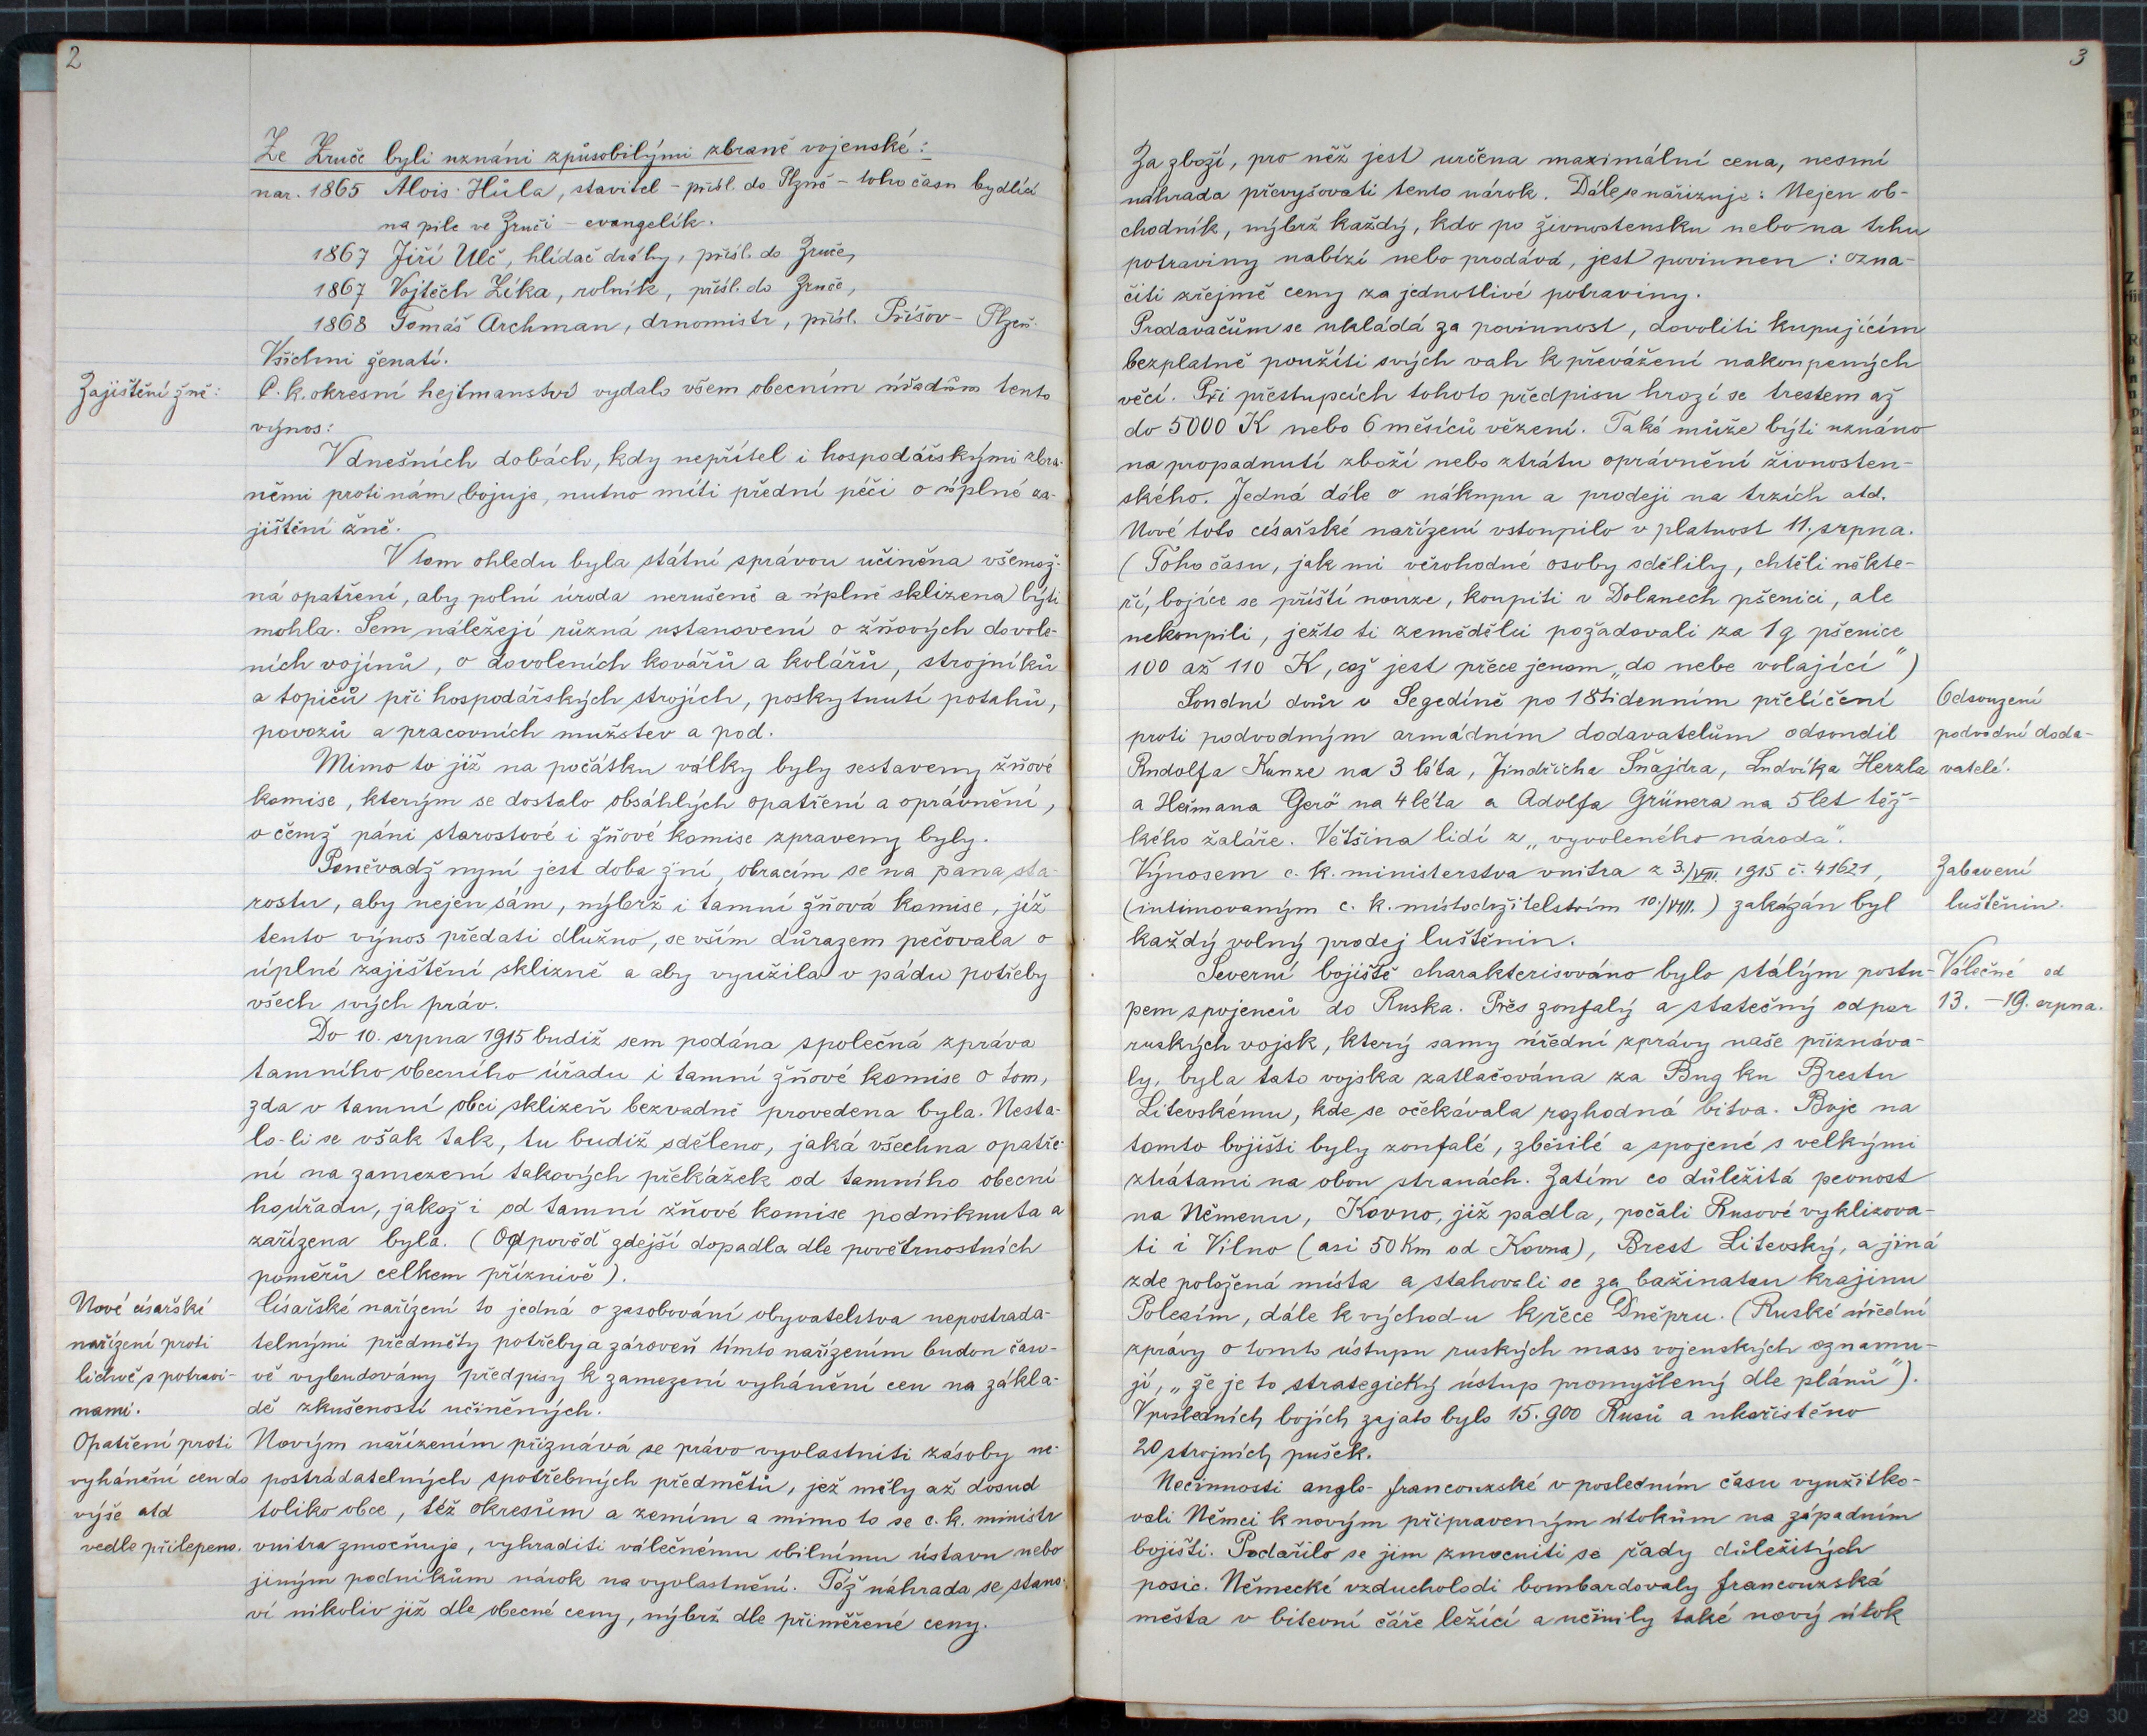 2
Ze Zruče byli uznáni způsobilými zbraně vojenské:
nar. 1865 Alois Hůla, stavitel - přísl. do Plzně - toho času bydlící
na pile ve Zruči - evangelík.
1867 Jiří Ulč, hlídač dráhy, přísl. do Zruče,
1867 Vojtěch Zíka, rolník, přísl. do Zruče,
1868 Tomáš Archman, drnomistr, přísl. Příšov - Plzeň.
Všichni ženatí.
Zajištění žně:
C. k. okresní hejtmanství vydalo všem obecním úřadům tento
výnos:
V dnešních dobách, kdy nepřítel i hospodářskými zbra-
němi proti nám bojuje, nutno míti přední péči o úplné za-
jištění žně.
V tom ohledu byla státní správou učiněna všemož-
ná opatření, aby polní úroda nerušeně a úplně sklizena býti
mohla. Sem náležejí různá ustanovení o žňových dovole-
ních vojínů, o dovoleních kovářů a kolářů, strojníků
a topičů při hospodářských strojích, poskytnutí potahů,
povozů a pracovních mužstev a pod.
Mimo to již na počátku války byly sestaveny žňové
komise, kterým se dostalo obsáhlých opatření a oprávnění,
o čemž páni starostové i žňové komise zpraveny byly.
Poněvadž nyní jest doba žní, obracím se na pana sta-
rostu, aby nejen sám, nýbrž i tamní žňová komise, jíž
tento výnos předati dlužno, se vším důrazem pečovala o
úplné zajištění sklizně a aby využila v pádu potřeby
všech svých práv.
Do 10. srpna 1915 budiž sem podána společná zpráva
tamního obecního úřadu i tamní žňové komise o tom,
zda v tamní obci sklizeň bezvadně provedena byla. Nesta-
lo-li se však tak, tu budiž sděleno, jaká všechna opatře-
ní na zamezení takových překážek od tamního obecní
ho úřadu, jakož i od tamní žňové komise podniknuta a
zařízena byla. (Odpověď zdejší dopadla dle povětrnostních
poměrů celkem příznivě).
Nové císařské
nařízení proti
lichvě s potravi-
nami.
Opatření proti
vyhánění cen do
výše atd
vedle přilepeno.
Císařské nařízení to jedná o zasobování obyvatelstva nepostrada-
telnými předměty potřeby a zároveň tímto nařízením budou časo-
vě vybudovány předpisy k zamezení vyhánění cen na zákla-
dě zkušeností učiněných.
Novým nařízením přiznává se právo vyvlastniti zásoby ne-
postrádatelných spotřebných předmětů, jež měly až dosud
toliko obce, též okresům a zemím a mimo to se c. k. ministr
vnitra zmocňuje, vyhraditi válečnému obilnímu ústavu nebo
jiným podnikům nárok na vyvlastnění. Též náhrada se stano-
ví nikoliv již dle obecné ceny, nýbrž dle přiměřené ceny.
3
Za zboží, pro něž jest určena maximální cena, nesmí
náhrada převyšovati tento nárok. Dále se nařizuje: Nejen ob-
chodník, nýbrž každý, kdo po živnostensku nebo na trhu
potraviny nabízí nebo prodává, jest povinnen: ozna-
čiti zřejmě ceny za jednotlivé potraviny.
Prodavačům se ukládá za povinnost, dovoliti kupujícím
bezplatně použíti svých vah k převážení nakoupených
věcí. Při přestupcích tohoto předpisu hrozí se trestem až
do 5000 K nebo 6 měsíců vězení. Také může býti uznáno
na propadnutí zboží nebo ztrátu oprávnění živnosten-
ského. Jedná dále o nákupu a prodeji na trzích atd.
Nové toto císařské nařízení vstoupilo v platnost 11. srpna.
(Toho času, jak mi věrohodné osoby sdělily, chtěli někte-
ří, bojíce se příští nouze, koupiti v Dolanech pšenici, ale
nekoupili, ježto ti zemědělci požadovali za 1 q pšenice
100 až 110 K, což jest přece jenom „do nebe volající")
Soudní dvůr v Segedíně po 18ti denním přelíčení
proti podvodným armádním dodavatelům odsoudil
Rudolfa Kunze na 3 léta, Jindřicha Šnajdra, Ludvíka Herzla
a Heřmana Gerö na 4 léta a Adolfa Grünera na 5 let těž-
kého žaláře. Většina lidí z „vyvoleného národa".
Odsouzení
podvodní doda-
vatelé.
Výnosem c. k. ministerstva vnitra z 3./VIII. 1915 č. 41621,
(intimovaným c. k. místodržitelstvím 10./VIII.) zakázán byl
každý volný prodej luštěnin.
Zabavení
luštěnin.
Severní bojiště charakterisováno bylo stálým postu-
pem spojenců do Ruska. Přes zoufalý a statečný odpor
ruských vojsk, který samy úřední zprávy naše přiznáva-
ly, byla tato vojska zatlačována za Bug ku Brestu
Litevskému, kde se očekávala rozhodná bitva. Boje na
tomto bojišti byly zoufalé, zběsilé a spojené s velkými
ztrátami na obou stranách. Zatím co důležitá pevnost
na Němenu, Kovno, již padla, počali Rusové vyklizova-
ti i Vilno (asi 50 Km od Kovna), Brest Litevský, a jiná
zde položená místa a stahovali se za bažinatou krajinu
Polesím, dále k východu k řece Dněpru. (Ruské úřední
zprávy o tomto ústupu ruských mass vojenských oznamu-
jí, „že je to strategický ústup promyšlený dle plánů").
V posledních bojích zajato bylo 15.900 Rusů a ukořistěno
20 strojních pušek.
Válečné od
13. - 19. srpna.
Nečinnosti anglo-francouzské v posledním času využitko-
vali Němci k novým připraveným útokům na západním
bojišti. Podařilo se jim zmocniti se řady důležitých
posic. Německé vzducholodi bombardovaly francouzská
města v bitevní čáře ležící a učinily také nový útok